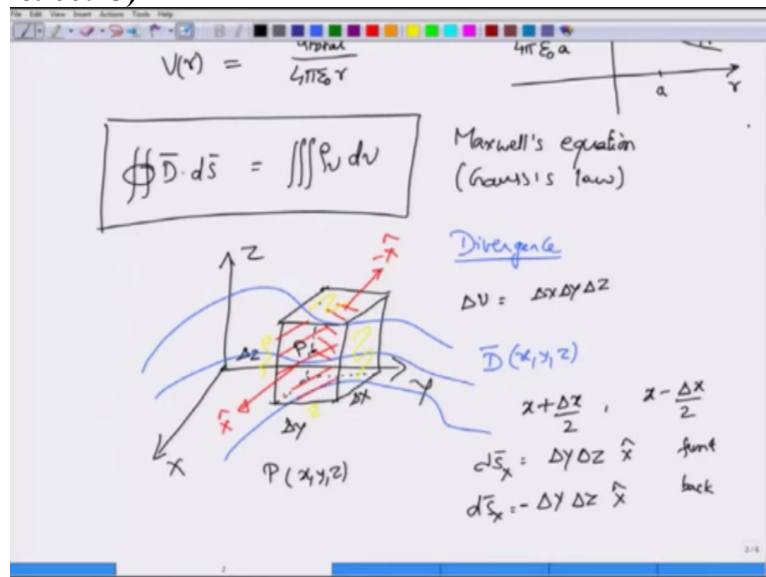 File Edit View Insert Actions Tools Help
V(r) = qtotal / 4πε₀r
4πε₀a
a
r
∯ D̄·ds̄ = ∭ ρv dv
Maxwell's equation
(Gauss's law)
Divergence
Δv = ΔxΔyΔz
D̄(x,y,z)
x+Δx/2 , x-Δx/2
ds̄x = ΔyΔz x̂ front
ds̄x = -ΔyΔz x̂ back
Z
-x̂
Δz
P
Y
x̂
Δx
Δy
X
P(x,y,z)
2/6
2